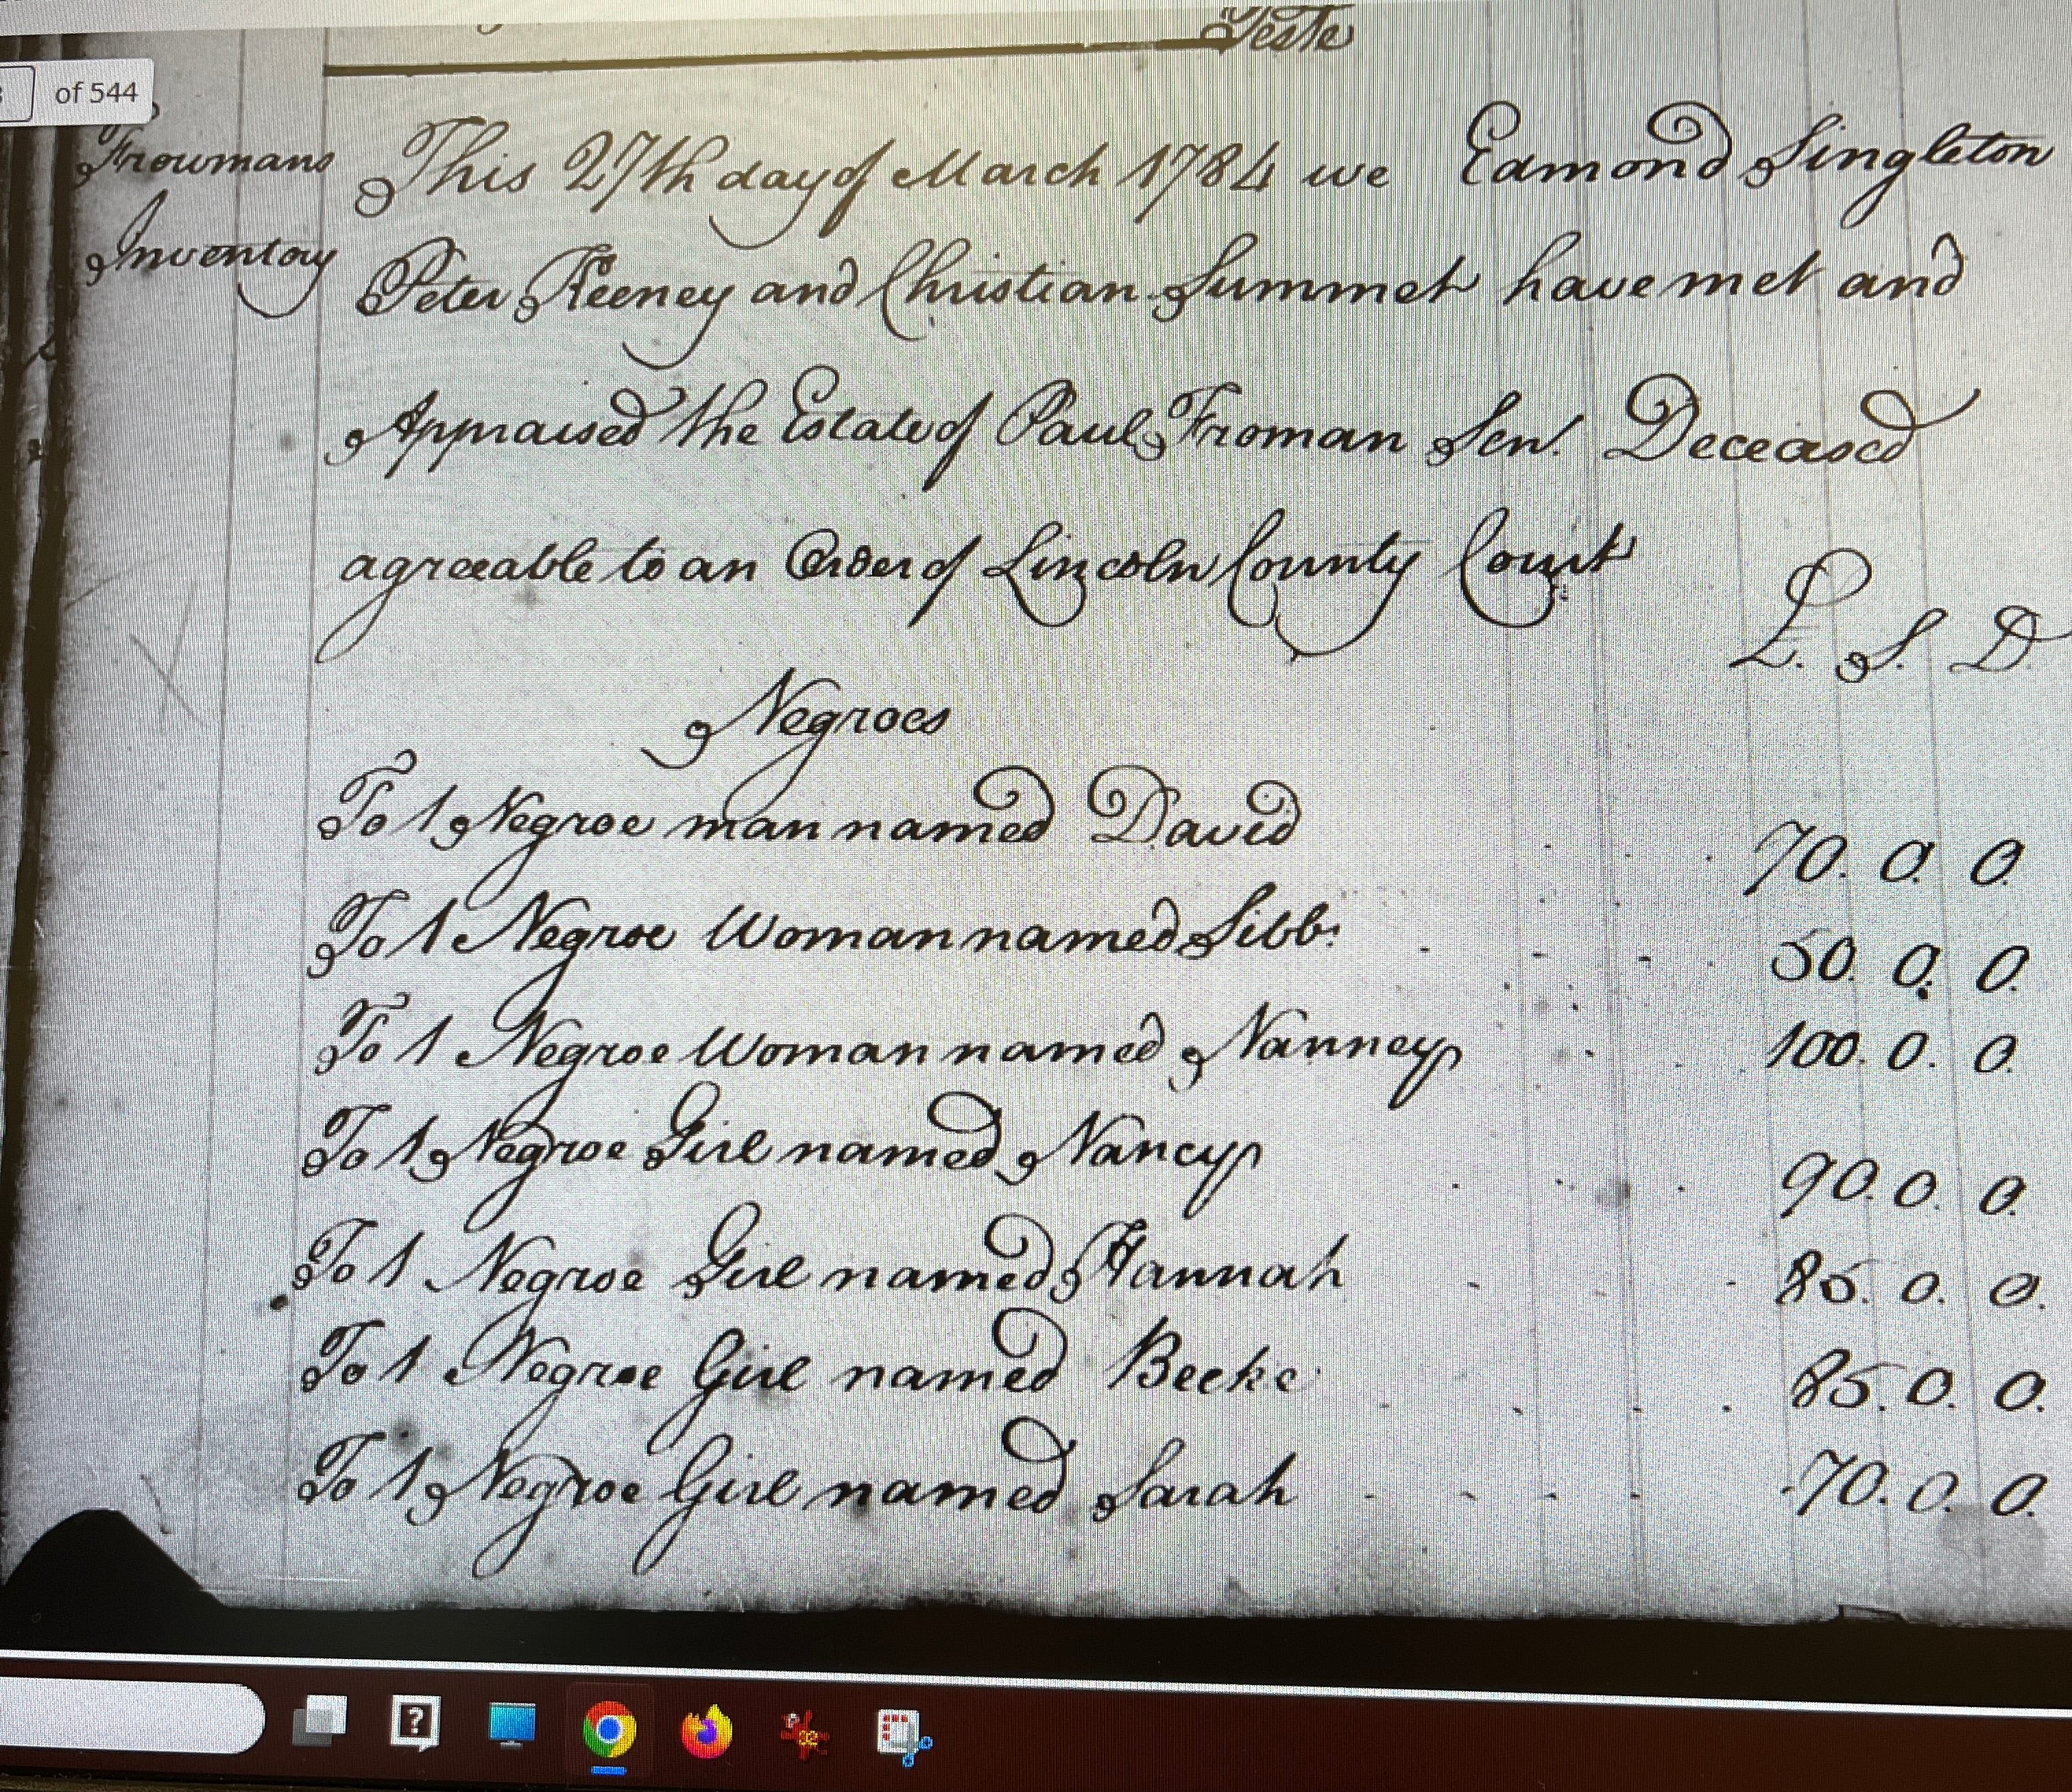 Teste
of 544
Frowmans
Inventory
This 27th day of March 1784 we Edmond Singleton
Peter Keeney and Christian Summet have met and
Appraised the Estate of Paul Froman Sen. Deceased
agreeable to an Order of Lincoln County Court
L. S. D
Negroes
To 1 Negroe man named David 70. 0. 0.
To 1 Negroe Woman named Sibb: 50. 0. 0.
To 1 Negroe Woman named Nanney 100. 0. 0.
To 1 Negroe Girl named Nancy 90. 0. 0.
To 1 Negroe Girl named Hannah 85. 0. 0.
To 1 Negroe Girl named Becke 85. 0. 0.
To 1 Negroe Girl named Sarah 70. 0. 0.